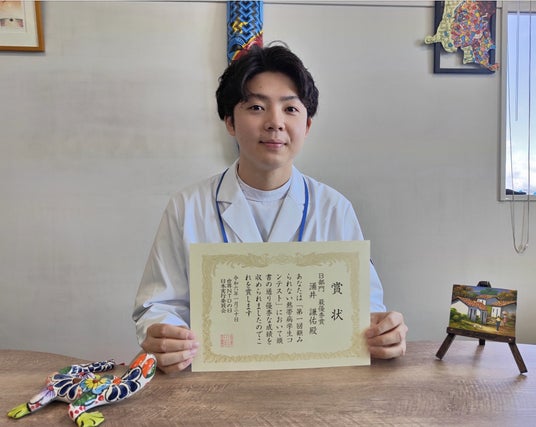 賞状
日部門 最優秀賞
涌井 謙佑 殿
あなたは「第一回顧み
られない熱帯病学生コ
ンテスト」において頭
書の通り優秀な成績を
収められましたのでこ
れを賞します
令和六年一月三十日
世界NTDの日
日本実行委員会